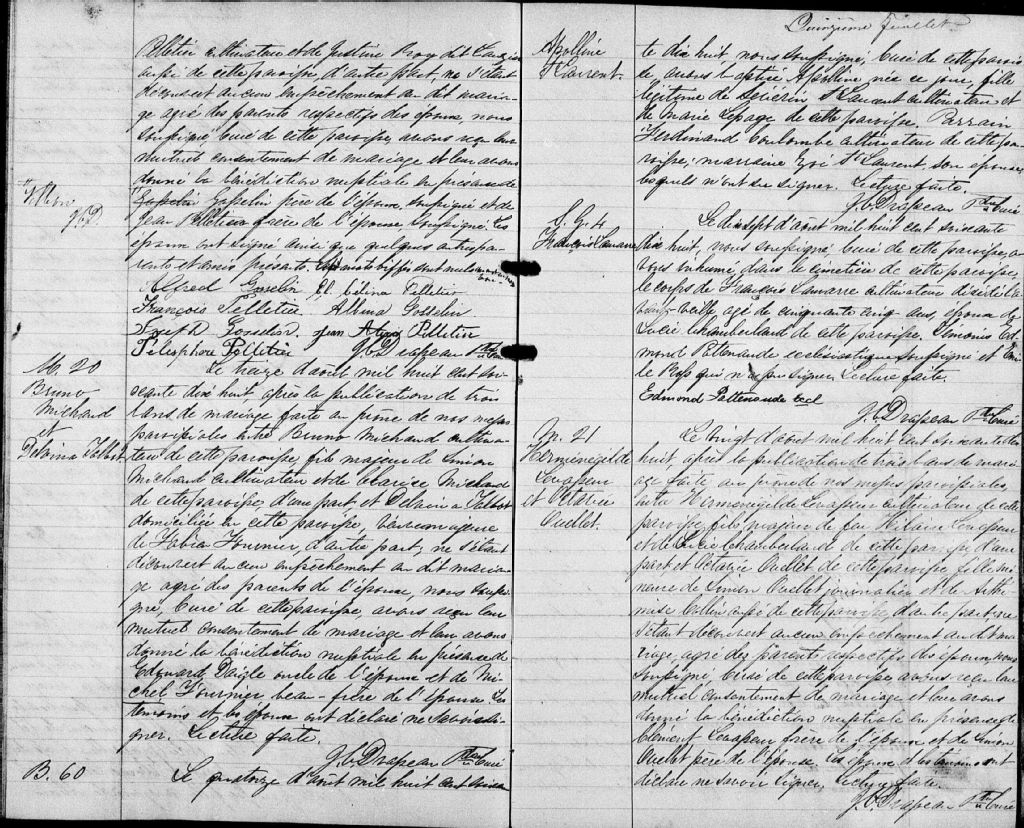 Pelletier cultivateur et de Justine Roy dit Lauzier
aussi de cette paroisse, d'autre part, ne s'étant
découvert aucun empêchement au dit maria-
ge agré des parents respectifs des époux, nous
soussigné, Curé de cette paroisse avons reçu leur
mutuel consentement de mariage et leur avons
donné la bénédiction nuptiale en présence de
père de l'époux, soussigné et de
Jean Pelletier frère de l'épouse soussigné. Les
époux ont signé ainsi que quelques autres pa-
rents et amis présents. mots biffés sont nuls
Alfred Gosselin Et bélina Pelletier
François Pelletier Albina Gosselin
Joseph Gosselin. Jean Pelletier
Télesphore Pelletier J.C. Drapeau Ptre Curé
M. 20
Bruno
Michaud
et
Delvina Talbot
Le treize d'août mil huit cent soi-
xante dix huit, après la publication de trois
bans de mariage faite au prône de nos messes
paroissiales entre Bruno Michaud cultiva-
teur de cette paroisse, fils majeur de Simon
Michaud cultivateur et de Clarisse Michaud
de cette paroisse, d'une part, et Delvina Talbot
domiciliée en cette paroisse, veuve majeure
de Fournier, d'autre part, ne s'étant
découvert aucun empêchement au dit maria-
ge agré des parents de l'épouse, nous soussi-
gné, Curé de cette paroisse, avons reçu leur
mutuel consentement de mariage et leur avons
donné la bénédiction nuptiale en présence de
Edouard Daigle oncle de l'époux et de Mi-
chel Fournier beau-frère de l'épouse. Les
témoins et les époux ont déclaré ne savoir si-
gner. Lecture faite.
J.C. Drapeau Ptre Curé
B. 60
Le quatorze d'août mil huit cent soixan
Quinzième feuillet
Apolline
St Laurent
te dix huit, nous soussigné, Curé de cette parois-
se, avons baptisé Apolline née ce jour, fille
légitime de St Laurent cultivateur et
de Marie Lepage de cette paroisse. Parrain
Ferdinand Coulombe cultivateur de cette pa-
roisse; marraine Zoé St Laurent son épouse,
lesquels n'ont su signer. Lecture faite.
J.C. Drapeau Ptre Curé
S. G. 4
François Lamarre
Le dixsept d'août mil huit cent soixante
dix huit, nous soussigné Curé de cette paroisse, a-
vons inhumé, dans le cimetière de cette paroisse,
le corps de François Lamarre cultivateur décédé l'a-
vant veille, agé de cinquante cinq ans, époux de
Lucie Chamberland de cette paroisse. Témoins Ed-
mond Pattenaude ecclésiastique soussigné et
le Ross qui n'a pu signer. Lecture faite.
Edmond Pattenaude eccl
J.C. Drapeau Ptre Curé
M. 21
Herménégilde
Levasseur
et Octavie
Ouellet.
Le vingt d'août mil huit cent soixante dix
huit, après la publication de trois bans de mari-
age faite au prône de nos messes paroissiales,
entre Herménégilde Levasseur cultivateur de cette
paroisse, fils majeur de feu Hilaire Levasseur
et de Lucie Chamberland de cette paroisse d'une
part et Octavie Ouellet de cette paroisse fille mi-
neure de Simon Ouellet journalier et de Arthé-
mise aussi de cette paroisse, d'autre part, ne
s'étant découvert aucun empêchement au dit ma-
riage, agré des parents respectifs des époux, nous
soussigné, Curé de cette paroisse avons reçu leur
mutuel consentement de mariage et leur avons
donné la bénédiction nuptiale en présence de
Clément Levasseur frère de l'époux et de Simon
Ouellet père de l'épouse. Les époux et les témoins ont
déclaré ne savoir signer. Lecture faite.
J.C. Drapeau Ptre Curé